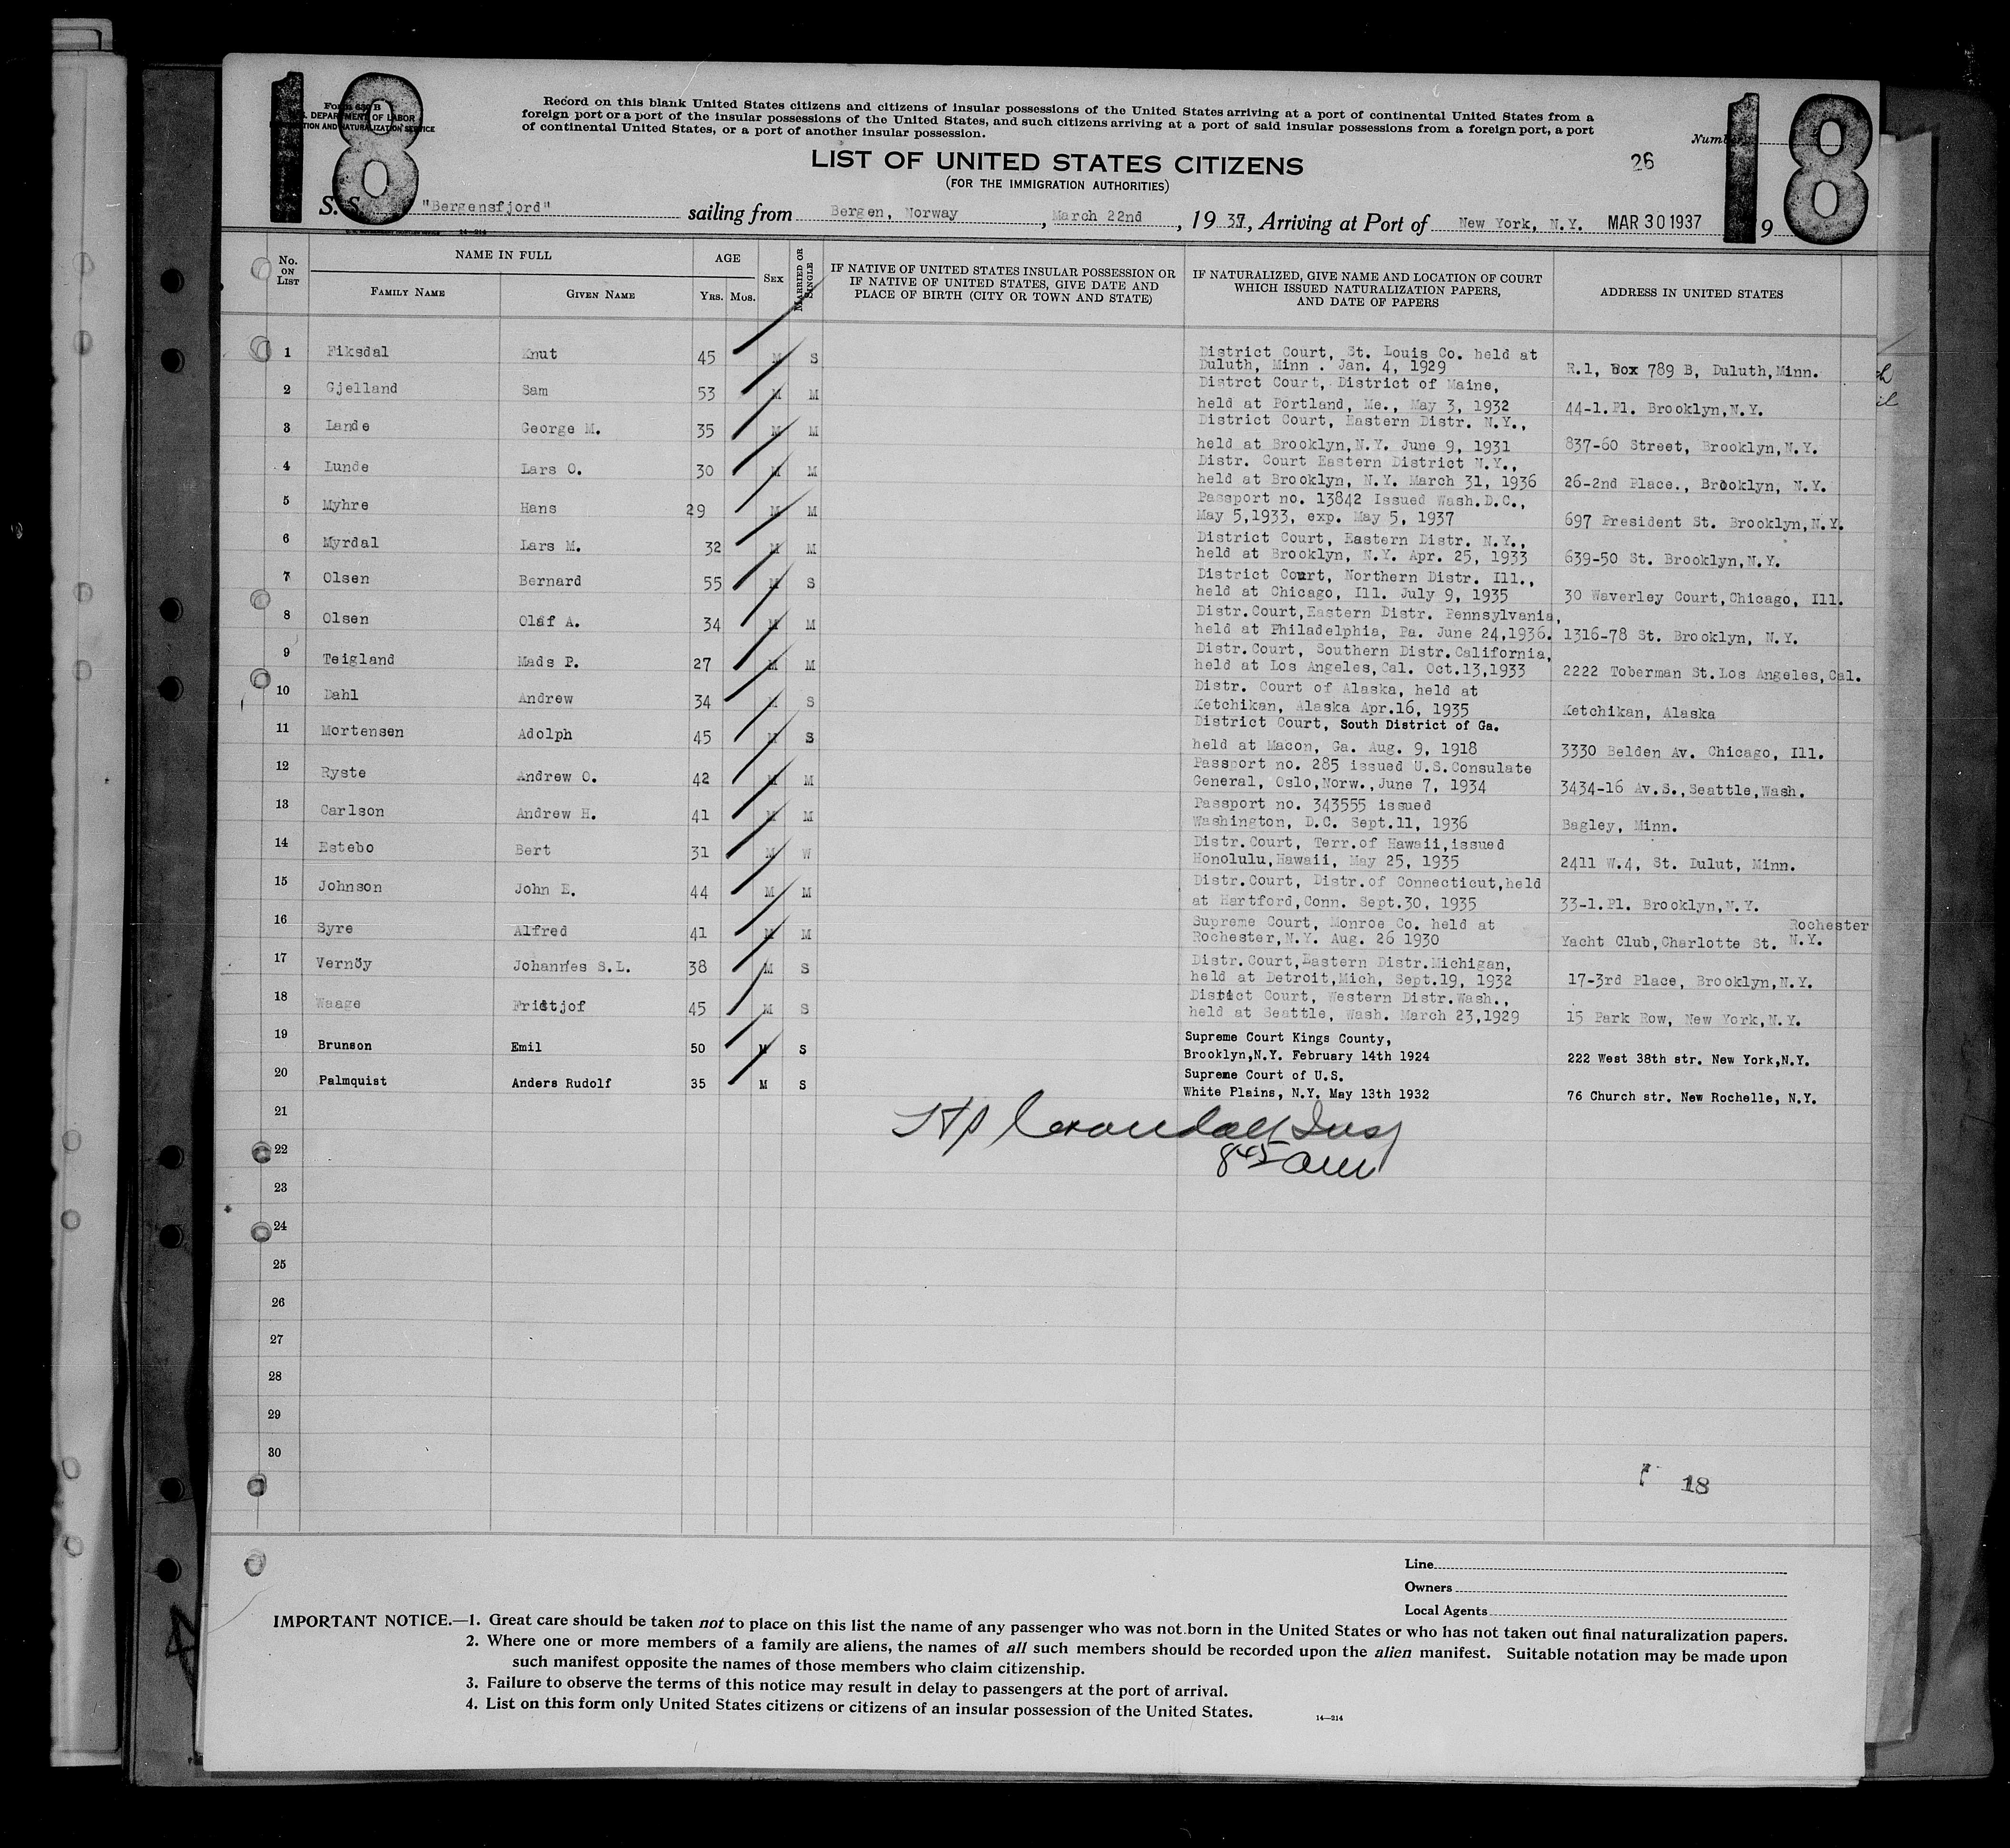 18
18
Form 630 B
DEPARTMENT OF LABOR
IMMIGRATION AND NATURALIZATION SERVICE
Record on this blank United States citizens and citizens of insular possessions of the United States arriving at a port of continental United States from a
foreign port or a port of the insular possessions of the United States, and such citizens arriving at a port of said insular possessions from a foreign port, a port
of continental United States, or a port of another insular possession.
LIST OF UNITED STATES CITIZENS
(FOR THE IMMIGRATION AUTHORITIES)
26
S. S. "Bergensfjord" sailing from Bergen, Norway, March 22nd, 1937, Arriving at Port of New York, N.Y. MAR 30 1937
14—214
No. ON LIST
NAME IN FULL
FAMILY NAME GIVEN NAME
AGE
YRS. MOS.
SEX
MARRIED OR SINGLE
IF NATIVE OF UNITED STATES INSULAR POSSESSION OR
IF NATIVE OF UNITED STATES, GIVE DATE AND
PLACE OF BIRTH (CITY OR TOWN AND STATE)
IF NATURALIZED, GIVE NAME AND LOCATION OF COURT
WHICH ISSUED NATURALIZATION PAPERS,
AND DATE OF PAPERS
ADDRESS IN UNITED STATES
1 Fiksdal Knut 45 M S District Court, St. Louis Co. held at
Duluth, Minn. Jan. 4, 1929 R.1, Box 789 B, Duluth, Minn.
2 Gjelland Sam 53 M M Distrct Court, District of Maine,
held at Portland, Me., May 3, 1932 44-1.Pl. Brooklyn, N.Y.
3 Lande George M. 35 M M District Court, Eastern Distr. N.Y.,
held at Brooklyn, N.Y. June 9, 1931 837-60 Street, Brooklyn, N.Y.
4 Lunde Lars O. 30 M M Distr. Court Eastern District N.Y.,
held at Brooklyn, N.Y. March 31, 1936 26-2nd Place., Brooklyn, N.Y.
5 Myhre Hans 29 M M Passport no. 13842 Issued Wash.D.C.,
May 5,1933, exp. May 5, 1937 697 President St. Brooklyn, N.Y.
6 Myrdal Lars M. 32 M M District Court, Eastern Distr. N.Y.,
held at Brooklyn, N.Y. Apr. 25, 1933 639-50 St. Brooklyn, N.Y.
7 Olsen Bernard 55 M S District Court, Northern Distr. Ill.,
held at Chicago, Ill. July 9, 1935 30 Waverley Court, Chicago, Ill.
8 Olsen Olaf A. 34 M M Distr. Court, Eastern Distr. Pennsylvania,
held at Philadelphia, Pa. June 24, 1936. 1316-78 St. Brooklyn, N.Y.
9 Teigland Mads P. 27 M M Distr. Court, Southern Distr. California,
held at Los Angeles, Cal. Oct.13,1933 2222 Toberman St. Los Angeles, Cal.
10 Dahl Andrew 34 M S Distr. Court of Alaska, held at
Ketchikan, Alaska Apr.16, 1935 Ketchikan, Alaska
11 Mortensen Adolph 45 M S District Court, South District of Ga.
held at Macon, Ga. Aug. 9, 1918 3330 Belden Av. Chicago, Ill.
12 Ryste Andrew O. 42 M M Passport no. 285 issued U.S. Consulate
General, Oslo, Norw., June 7, 1934 3434-16 Av.S., Seattle, Wash.
13 Carlson Andrew H. 41 M M Passport no. 343555 issued
Washington, D.C. Sept.11, 1936 Bagley, Minn.
14 Estebo Bert 31 M W Distr. Court, Terr. of Hawaii, issued
Honolulu, Hawaii, May 25, 1935 2411 W.4, St. Dulut, Minn.
15 Johnson John E. 44 M M Distr. Court, Distr. of Connecticut, held
at Hartford, Conn. Sept.30, 1935 33-1.Pl. Brooklyn, N.Y.
16 Syre Alfred 41 M M Supreme Court, Monroe Co. held at Rochester
Rochester, N.Y. Aug. 26 1930 Yacht Club, Charlotte St. N.Y.
17 Vernöy Johannes S.L. 38 M S Distr. Court, Eastern Distr. Michigan,
held at Detroit, Mich, Sept.19, 1932 17-3rd Place, Brooklyn, N.Y.
18 Waage Fridtjof 45 M S District Court, Western Distr. Wash.,
held at Seattle, Wash. March 23,1929 15 Park Row, New York, N.Y.
19 Brunson Emil 50 M S Supreme Court Kings County,
Brooklyn, N.Y. February 14th 1924 222 West 38th str. New York, N.Y.
20 Palmquist Anders Rudolf 35 M S Supreme Court of U.S.
White Plains, N.Y. May 13th 1932 76 Church str. New Rochelle, N.Y.
21
Crandall Insp
22
8 45 am
23
24
25
26
27
28
29
30
18
Line
Owners
Local Agents
IMPORTANT NOTICE.—1. Great care should be taken not to place on this list the name of any passenger who was not born in the United States or who has not taken out final naturalization papers.
2. Where one or more members of a family are aliens, the names of all such members should be recorded upon the alien manifest. Suitable notation may be made upon
such manifest opposite the names of those members who claim citizenship.
3. Failure to observe the terms of this notice may result in delay to passengers at the port of arrival.
4. List on this form only United States citizens or citizens of an insular possession of the United States.
14—214